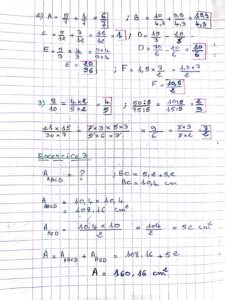 2) A = 5/7 + 1/7 = 6/7 ; B = 10/4,3 + 9,3/4,3 = 19,3/4,3
C = 5/12 + 7/12 = 12/12 = 1 ; D = 15/ - 10/
E = 5/9 × 4/4 = 5×4/9×4 D = 30/6 - 10/6 = 10/6
E = 20/36 ; F = 1,5 × 7/2 = 1,5×7/2
F = 10,5/2
3) 8/10 = 4×2/5×2 = 4/5 ; 50:5/75:5 = 10:5/15:5 = 2/3
21×15/30×7 = 7×3×5×3/5×6×7 = 9/6 = 3×3/3×2 = 3/2
Exercice 3
A ABCD = ? ; BC = 5,2 + 5,2
BC = 10,4 cm
A ABCD = 10,4 × 10,4
= 108,16 cm²
A AED = 10,4 × 10/2 = 104/2 = 52 cm²
A = A ABCD + A AED = 108,16 + 52
A = 160,16 cm²